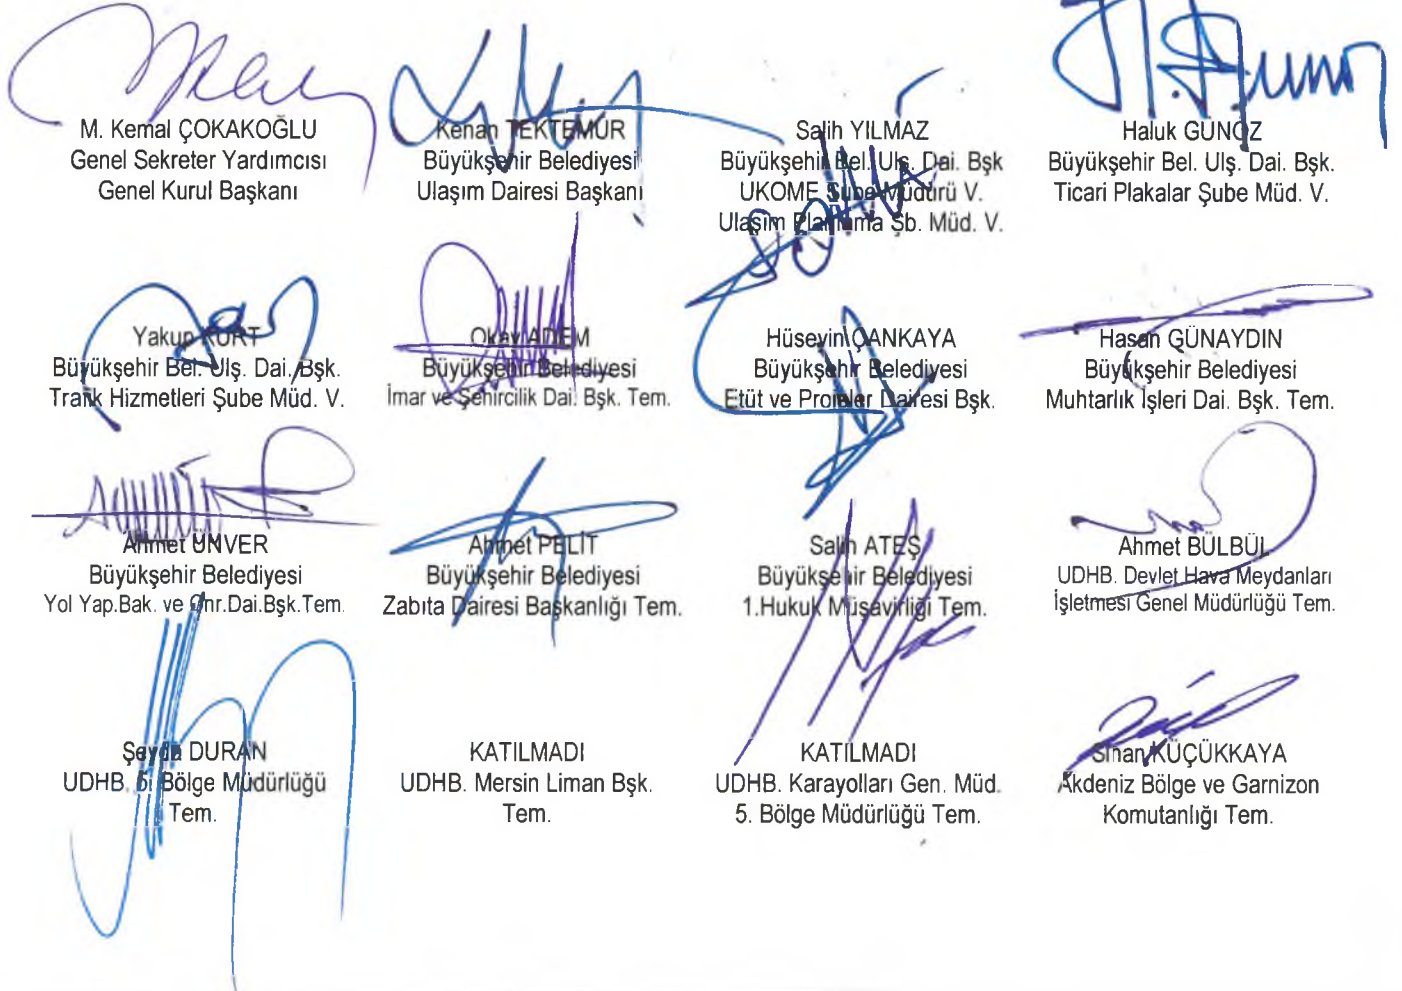 M. Kemal ÇOKAKOĞLU
Genel Sekreter Yardımcısı
Genel Kurul Başkanı
Kenan TEKTEMUR
Büyükşehir Belediyesi
Ulaşım Dairesi Başkanı
Salih YILMAZ
Büyükşehir Bel. Ulş. Dai. Bşk
UKOME Şube Müdürü V.
Ulaşım Planlama Şb. Müd. V.
Haluk GÜNÖZ
Büyükşehir Bel. Ulş. Dai. Bşk.
Ticari Plakalar Şube Müd. V.
Yakup KURT
Büyükşehir Bel. Ulş. Dai. Bşk.
Trafik Hizmetleri Şube Müd. V.
Okay ADEM
Büyükşehir Belediyesi
İmar ve Şehircilik Dai. Bşk. Tem.
Hüseyin ÇANKAYA
Büyükşehir Belediyesi
Etüt ve Projeler Dairesi Bşk.
Hasan GÜNAYDIN
Büyükşehir Belediyesi
Muhtarlık İşleri Dai. Bşk. Tem.
Ahmet ÜNVER
Büyükşehir Belediyesi
Yol Yap.Bak. ve Onr.Dai.Bşk.Tem.
Ahmet PELİT
Büyükşehir Belediyesi
Zabıta Dairesi Başkanlığı Tem.
Salih ATEŞ
Büyükşehir Belediyesi
1.Hukuk Müşavirliği Tem.
Ahmet BÜLBÜL
UDHB. Devlet Hava Meydanları
İşletmesi Genel Müdürlüğü Tem.
DURAN
UDHB. 5. Bölge Müdürlüğü
Tem.
KATILMADI
UDHB. Mersin Liman Bşk.
Tem.
KATILMADI
UDHB. Karayolları Gen. Müd.
5. Bölge Müdürlüğü Tem.
Sinan KÜÇÜKKAYA
Akdeniz Bölge ve Garnizon
Komutanlığı Tem.